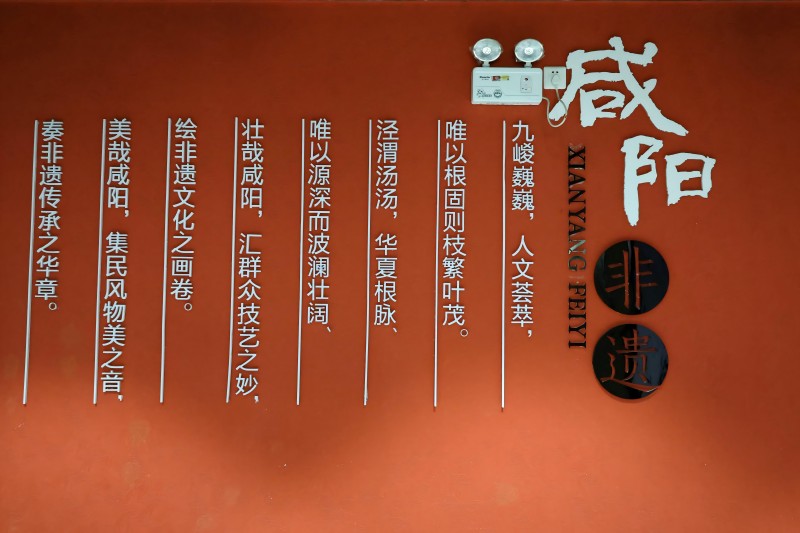 咸阳
非遗
XIANYANG FEIYI
九嵕巍巍，人文荟萃，
唯以根固则枝繁叶茂。
泾渭汤汤，华夏根脉、
唯以源深而波澜壮阔、
壮哉咸阳，汇群众技艺之妙，
绘非遗文化之画卷。
美哉咸阳，集民风物美之音，
奏非遗传承之华章。